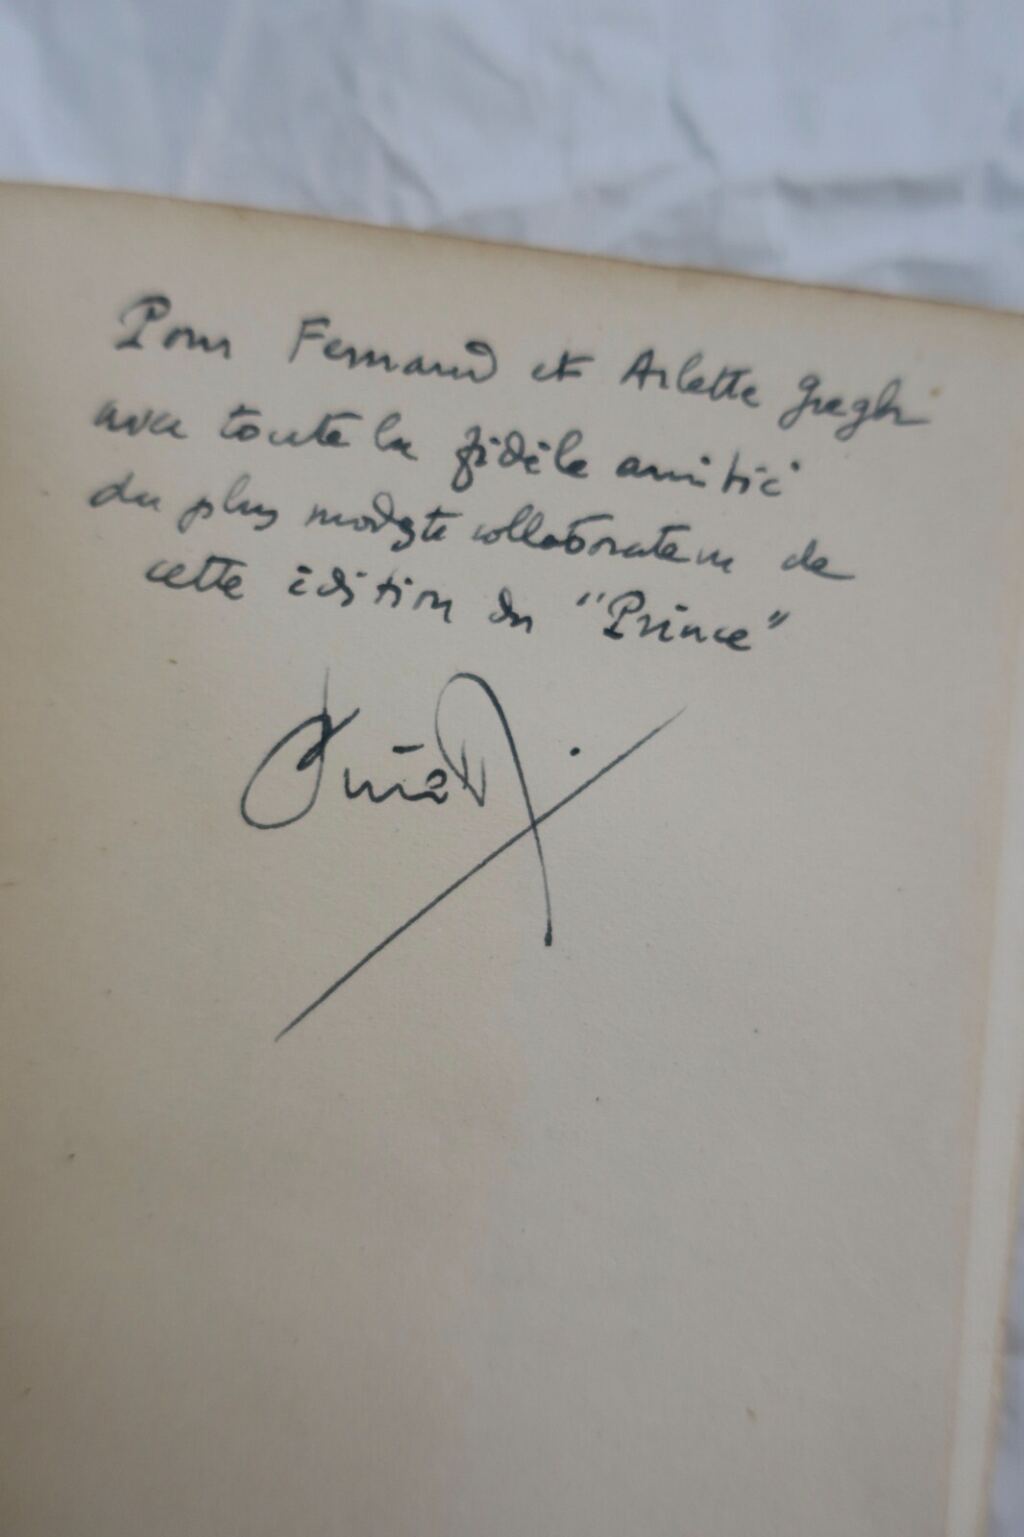 Pour Fernand et Arlette Gregh
avec toute la fidèle amitié
du plus modeste collaborateur de
cette édition du "Prince"